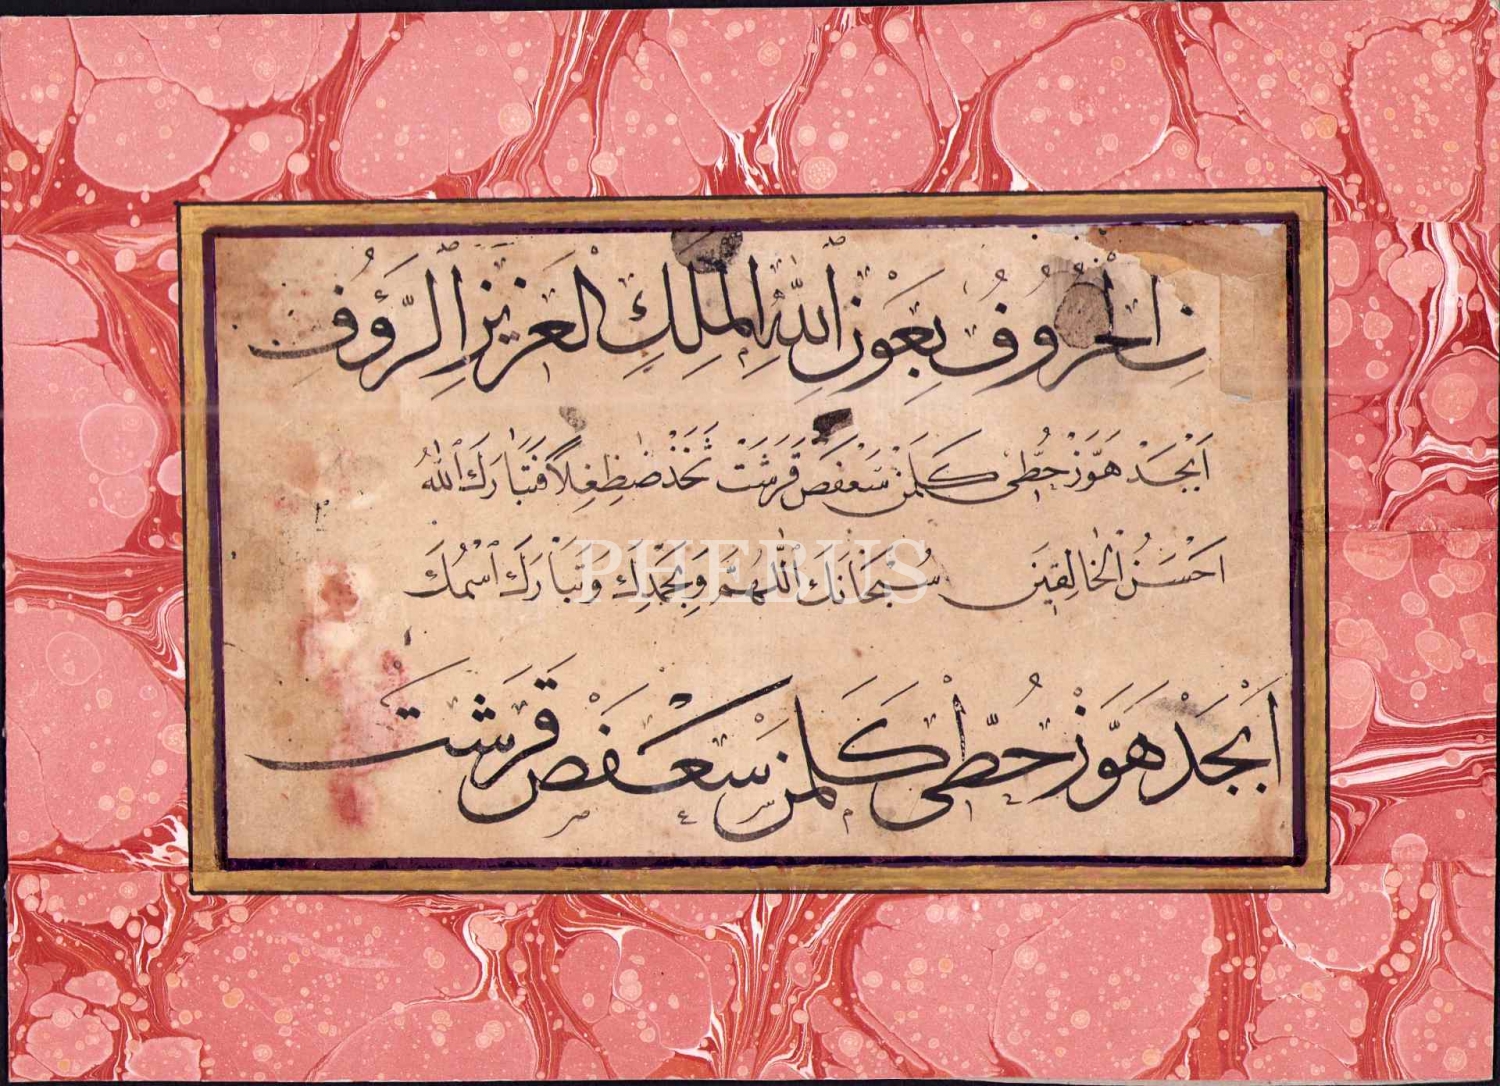 ت الْحُرُوفُ بِعَوْنِ اللّٰهِ الْمَلِكِ الْعَزِيزِ الرَّؤُفِ
اَبْجَدْ هَوَّزْ حُطِّى كَلَمَنْ سَعْفَصْ قَرَشَتْ ثَخَذْ ضَظِغٍلاً فَتَبَارَكَ اللّٰهُ
اَحْسَنُ الْخَالِقِينَ سُبْحَانَكَ اللّٰهُمَّ وَبِحَمْدِكَ وَتَبَارَكَ اسْمُكَ
اَبْجَدْ هَوَّزْ حُطِّى كَلَمَنْ سَعْفَصْ قَرَشَتْ
PHEBUS